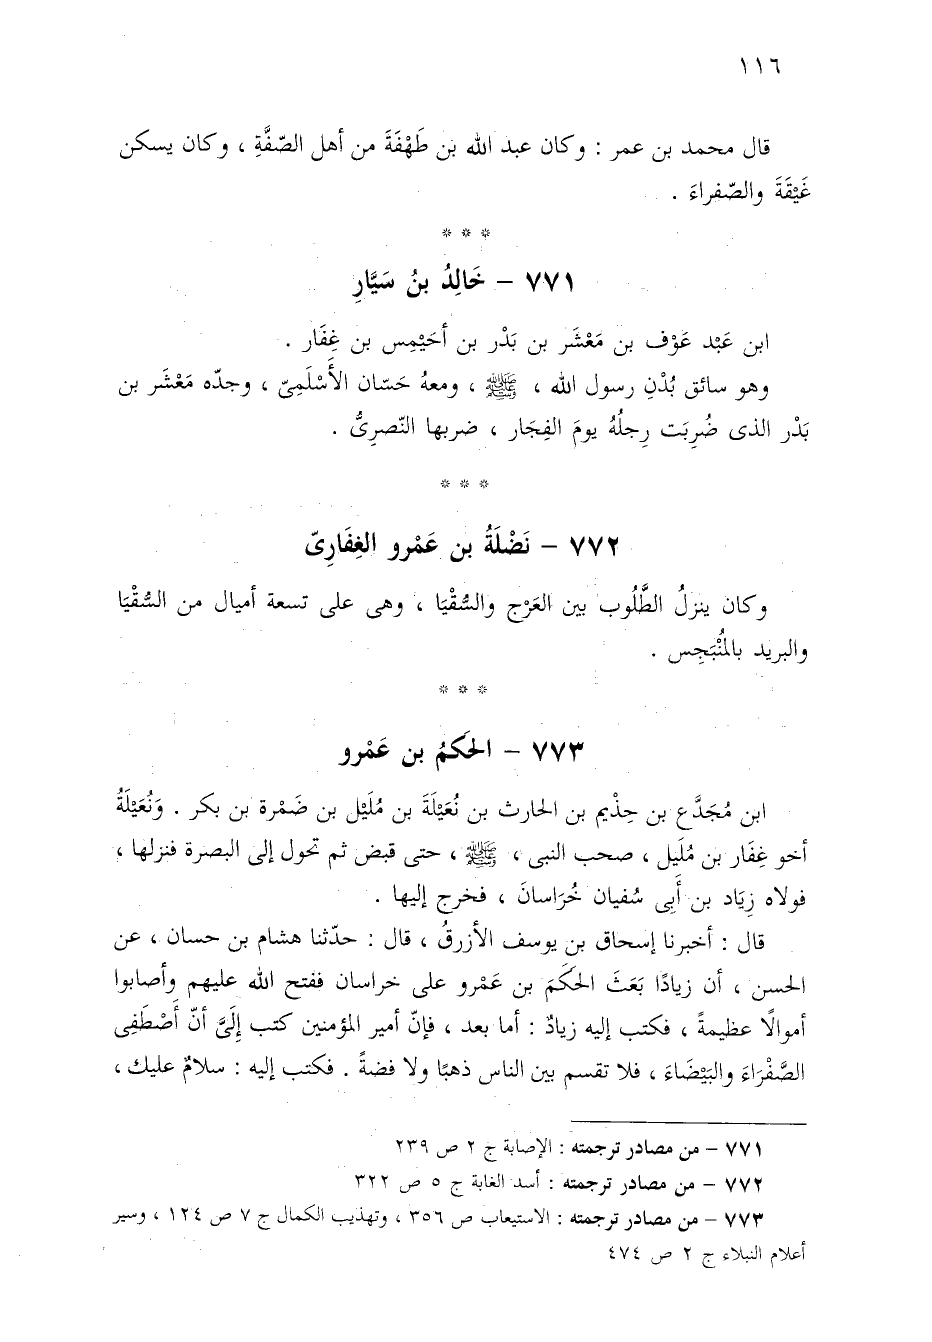 ١١٦
قال محمد بن عمر : وكان عبد الله بن طَهْفَةَ من أهل الصّفَّةِ ، وكان يسكن
غَيْقَةَ والصّفراءَ .
* * *
٧٧١ – خَالِدُ بنُ سَيَّارِ
ابن عَبْد عَوْف بن مَعْشَر بن بَدْر بن أحَيْمِس بن غِفَار .
وهو سائق بُدْنِ رسول الله ، ﷺ ، ومعهُ حَسّان الأَسْلَمِىّ ، وجدّه مَعْشَر بن
بَدْر الذى ضُرِبَت رِجلُهُ يومَ الفِجَار ، ضربها النّصرِىُّ .
* * *
٧٧٢ – نَضْلَةُ بن عَمْرو الغِفَارِىّ
وكان ينزلُ الطَّلُوب بين العَرْج والسُّقْيَا ، وهى على تسعة أميال من السُّقْيَا
والبريد بالمُنْبَجِس .
* * *
٧٧٣ – الحَكمُ بن عَمْرو
ابن مُجَدَّع بن حِذْيم بن الحارث بن نُعَيْلَةَ بن مُلَيْل بن ضَمْرة بن بكر . وَنُعَيْلَةُ
أخو غِفَار بن مُلَيل ، صحب النبى ، ﷺ ، حتى قبض ثم تحول إلى البصرة فنزلها ،
فولاه زِيَاد بن أَبِى سُفيان خُرَاسانَ ، فخرج إليها .
قال : أخبرنا إسحاق بن يوسف الأزرقُ ، قال : حدّثنا هشام بن حسان ، عن
الحسن ، أن زيادًا بَعَثَ الحَكَمَ بن عَمْرو على خراسان ففتح الله عليهم وأصابوا
أموالًا عظيمةً ، فكتب إليه زيادٌ : أما بعد ، فإنّ أمير المؤمنين كتب إِلَىَّ أنّ أَصْطَفِى
الصَّفْرَاءَ والبَيْضَاءَ ، فلا تقسم بين الناس ذهبًا ولا فضةً . فكتب إليه : سلامٌ عليك ،
٧٧١ – من مصادر ترجمته : الإصابة ج ٢ ص ٢٣٩
٧٧٢ – من مصادر ترجمته : أسد الغابة ج ٥ ص ٣٢٢
٧٧٣ – من مصادر ترجمته : الاستيعاب ص ٣٥٦ ، وتهذيب الكمال ج ٧ ص ١٢٤ ، وسير
أعلام النبلاء ج ٢ ص ٤٧٤